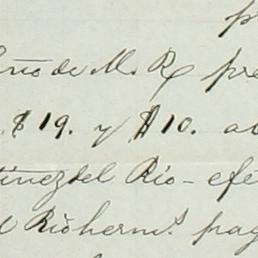 p
año de M. R pre
$19. y $10. al
tinez del Rio - efe
l Rio herm.s pag